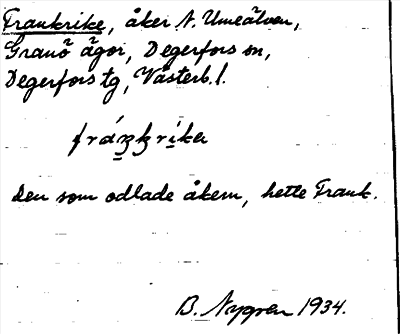 Frankrike, åker N. Umeälven,
Granö ägor, Degerfors sn,
Degerfors tg, Västerb. l.
Den som odlade åkern, hette Frank.
B. Nygren 1934.